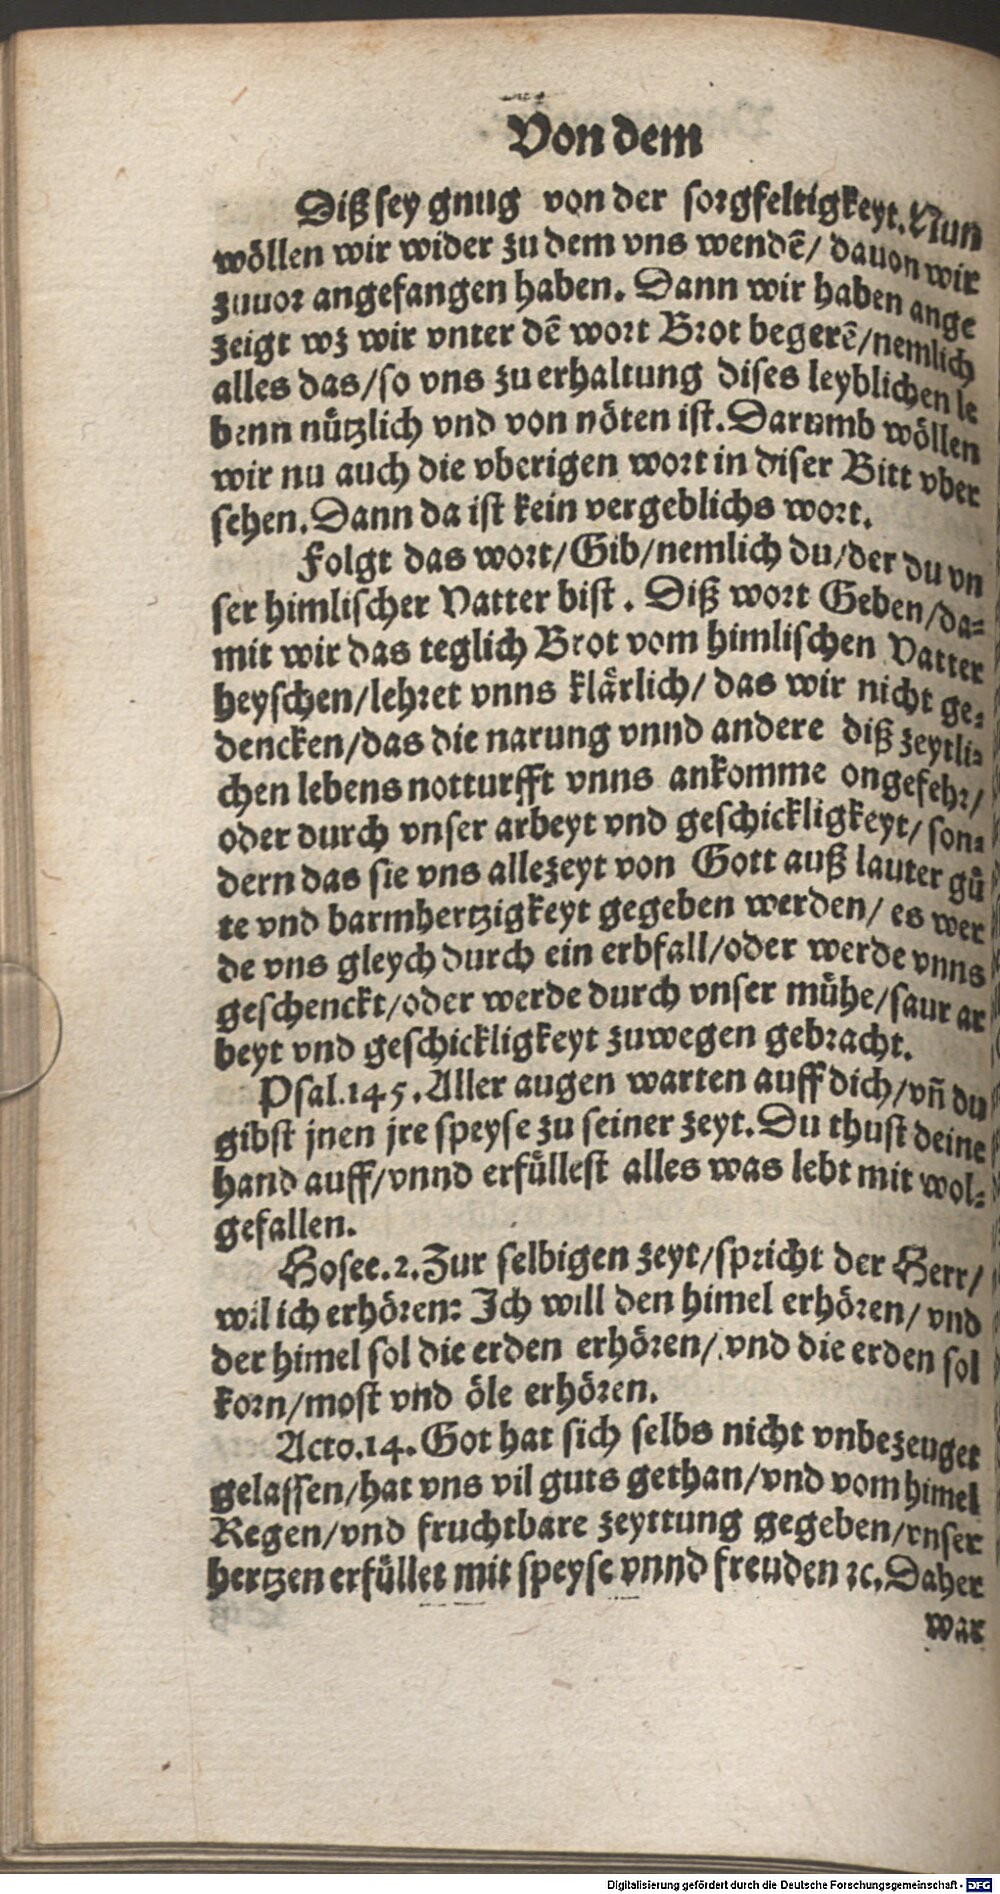 Von dem
Diß sey gnug von der sorgfeltigkeyt. Nun
wöllen wir wider zu dem vns wendē/ dauon wir
zuuor angefangen haben. Dann wir haben ange
zeigt wz wir vnter dē wort Brot begerē/nemlich
alles das/so vns zu erhaltung dises leyblichen le
benn nützlich vnd von nöten ist. Darumb wöllen
wir nu auch die vberigen wort in diser Bitt vber
sehen. Dann da ist kein vergeblichs wort.
Folgt das wort/Gib/nemlich du/der du vn
ser himlischer Vatter bist. Diß wort Geben/da=
mit wir das teglich Brot vom himlischen Vatter
heyschen/lehret vnns klärlich/ das wir nicht ge=
dencken/das die narung vnnd andere diß zeytli=
chen lebens notturfft vnns ankomme ongefehr/
oder durch vnser arbeyt vnd geschickligkeyt/ son=
dern das sie vns allezeyt von Gott auß lauter gü
te vnd barmhertzigkeyt gegeben werden/ es wer
de vns gleych durch ein erbfall/oder werde vnns
geschenckt/oder werde durch vnser mühe/saur ar
beyt vnd geschickligkeyt zuwegen gebracht.
Psal.145. Aller augen warten auff dich/vñ du
gibst jnen jre speyse zu seiner zeyt. Du thust deine
hand auff/vnnd erfüllest alles was lebt mit wol=
gefallen.
Hosee.2. Zur selbigen zeyt/spricht der Herr/
wil ich erhören: Ich will den himel erhören/ vnd
der himel sol die erden erhören/ vnd die erden sol
korn/most vnd öle erhören.
Acto.14. Got hat sich selbs nicht vnbezeuget
gelassen/hat vns vil guts gethan/vnd vom himel
Regen/vnd fruchtbare zeyttung gegeben/vnser
hertzen erfüllet mit speyse vnnd freuden ꝛc. Daher
war
Digitalisierung gefördert durch die Deutsche Forschungsgemeinschaft - DFG